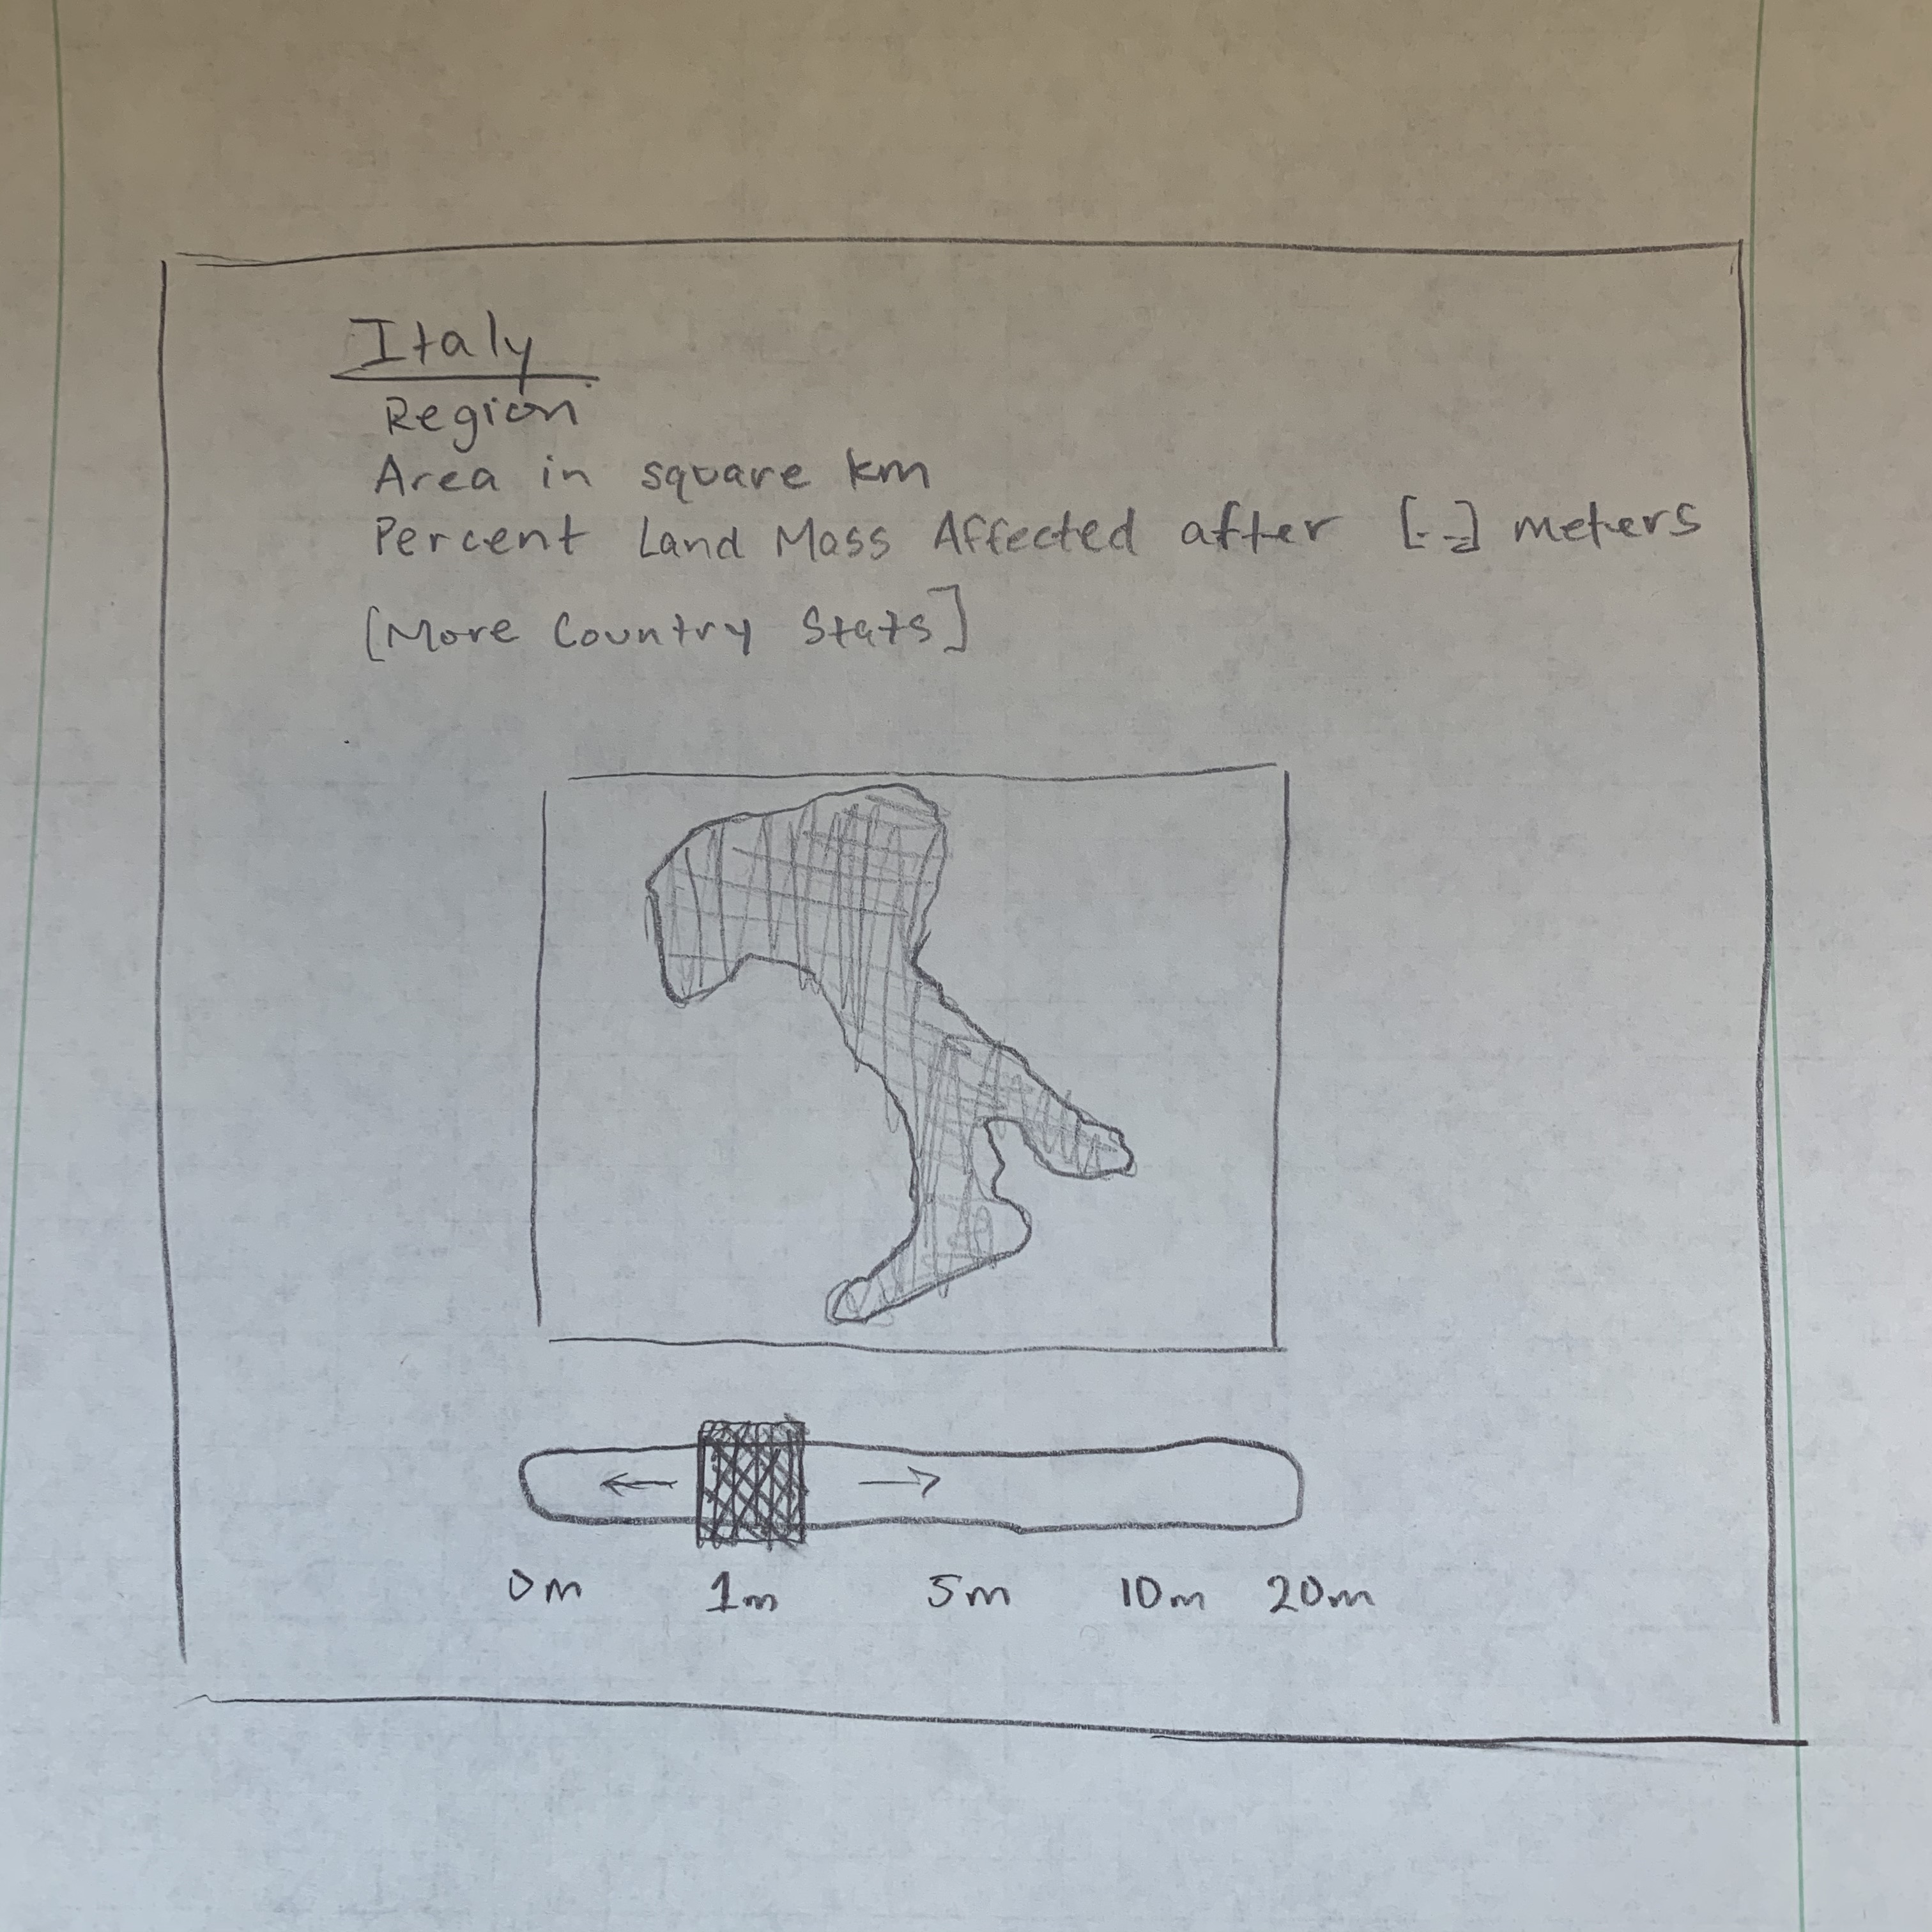 Italy
Region
Area in square km
Percent Land Mass Affected after [--] meters
[More Country Stats]
0m 1m 5m 10m 20m